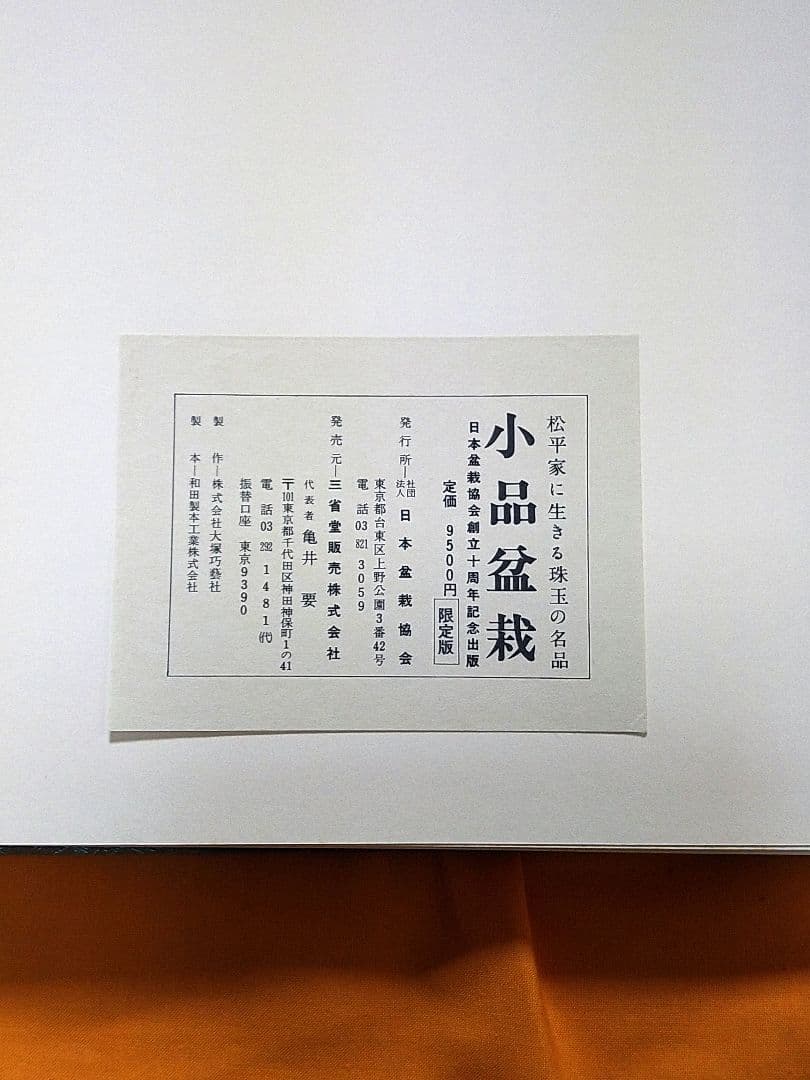 松平家に生きる珠玉の名品
小品盆栽
日本盆栽協会創立十周年記念出版
定価 9500円 限定版
発行所―社団法人 日本盆栽協会
東京都台東区上野公園3番42号
電話03 821 3059
発売元―三省堂販売株式会社
代表者 亀井 要
〒101東京都千代田区神田神保町1の41
電話03 292 1481(代)
振替口座 東京9390
製作―株式会社大塚巧藝社
製本―和田製本工業株式会社